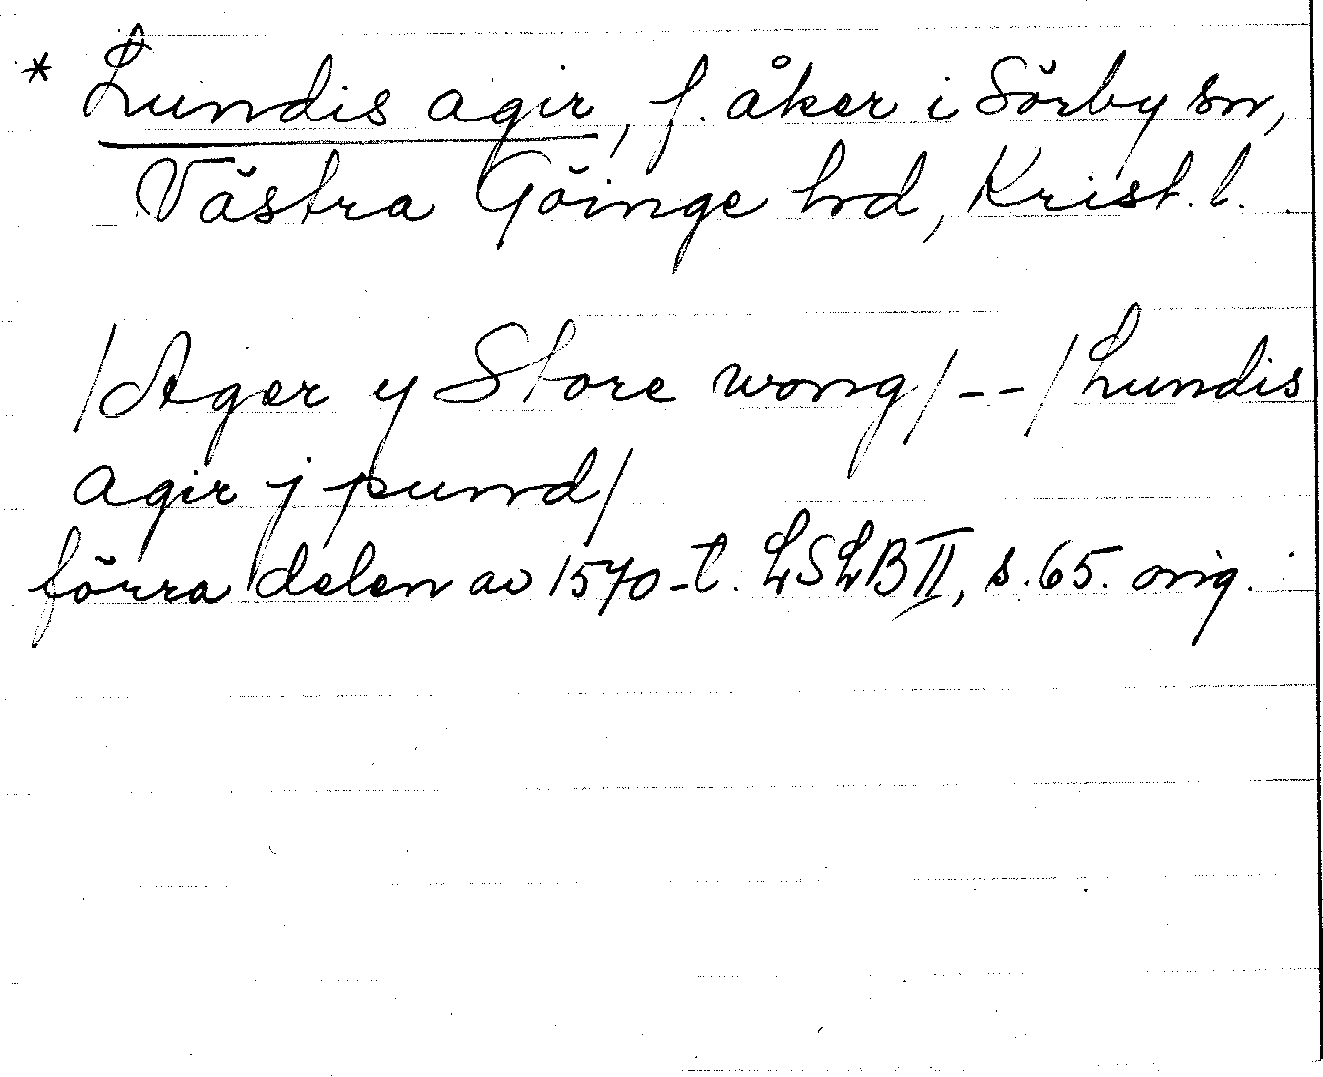 * Lundis agir, f. åker i Sörby sn,
Västra Göinge hrd, Krist. l.
/Ager y Store wong/--/Lundis
agir j pund/
förra delen av 1570-t. LSLB II, s. 65. orig.